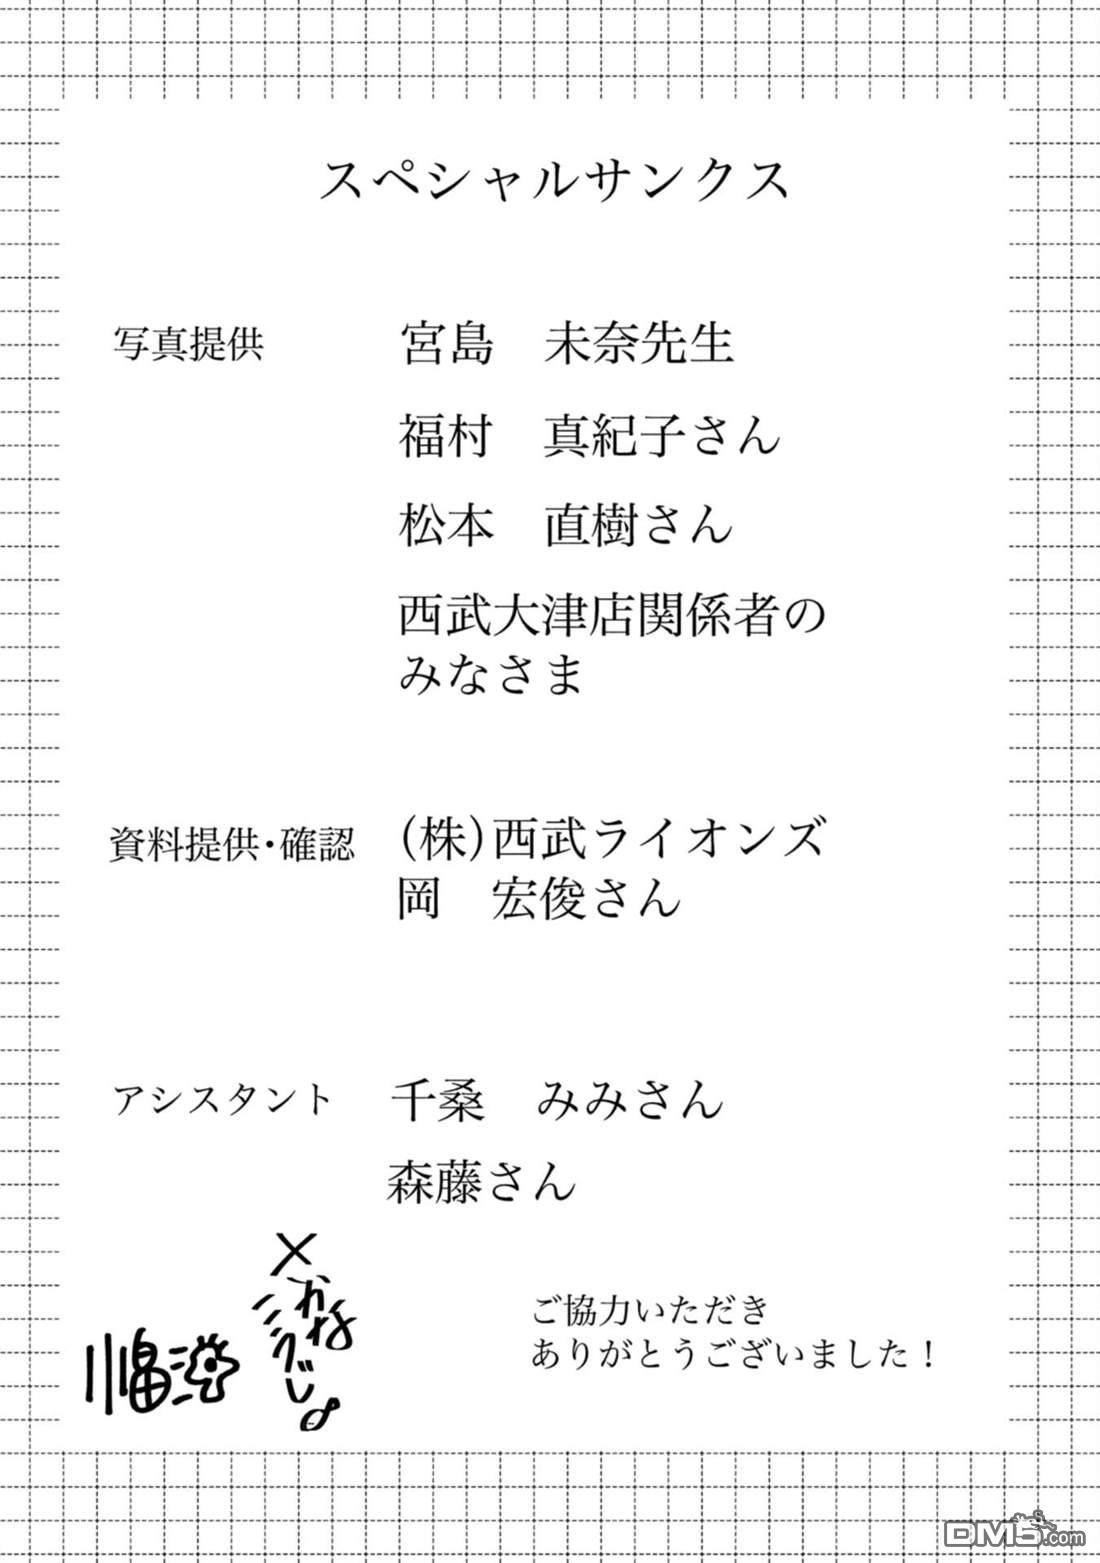 スペシャルサンクス
写真提供　宮島　未奈先生
福村　真紀子さん
松本　直樹さん
西武大津店関係者の
みなさま
資料提供・確認　(株)西武ライオンズ
岡　宏俊さん
アシスタント　千桑　みみさん
森藤さん
ご協力いただき
ありがとうございました！
DM5.com